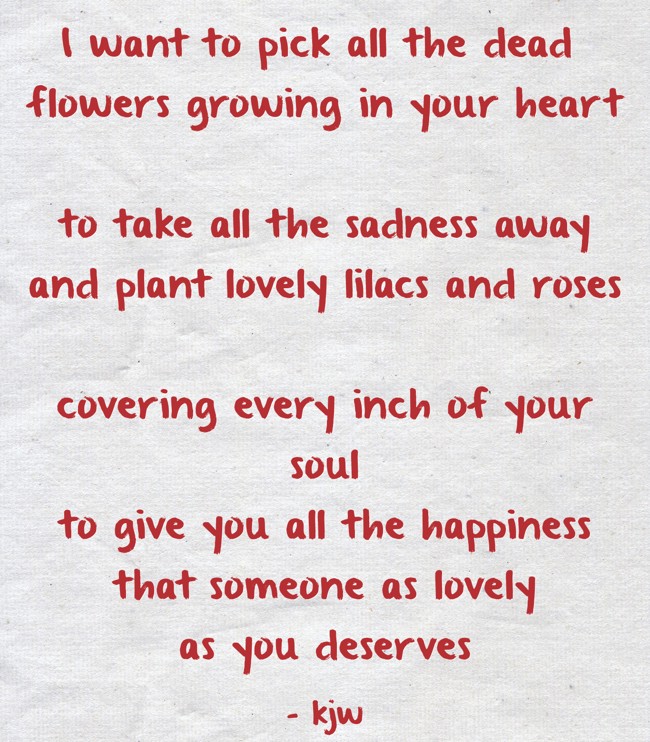 I want to pick all the dead
flowers growing in your heart
to take all the sadness away
and plant lovely lilacs and roses
covering every inch of your
soul
to give you all the happiness
that someone as lovely
as you deserves
- kjw